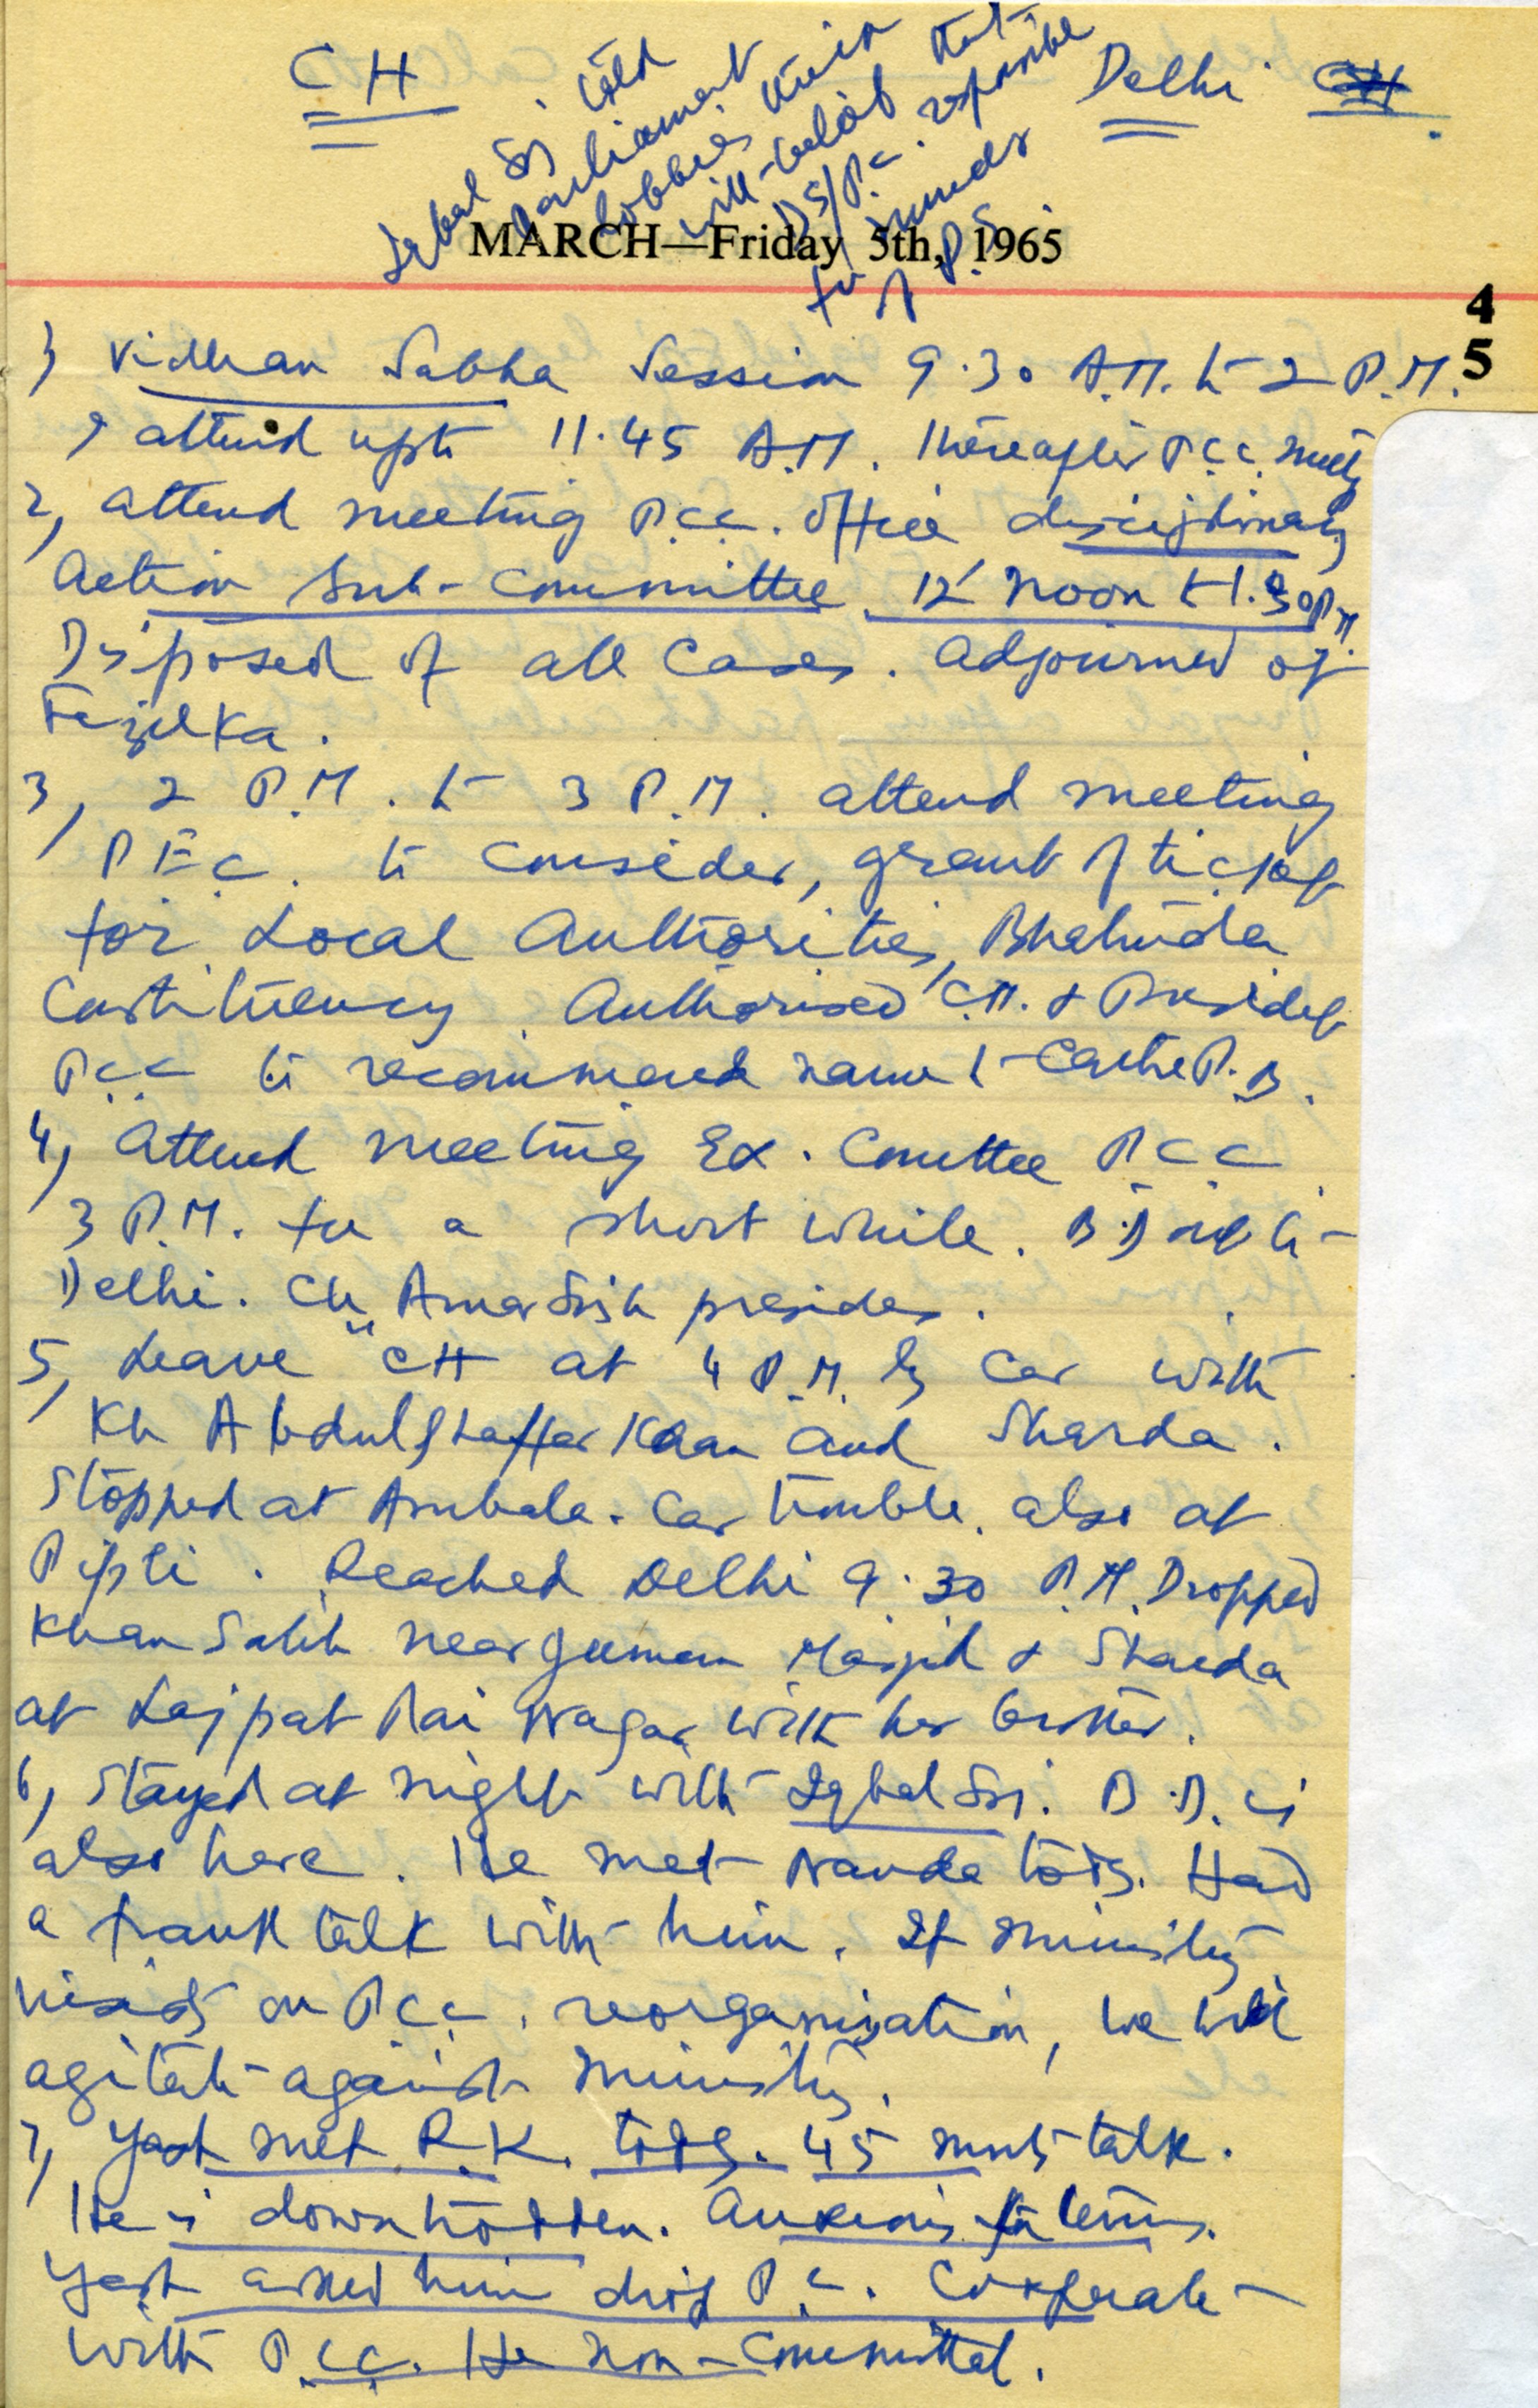 CH Delhi
Iqbal Sn. told
Parliament
lobbies
that
D.S/P.C. responsible
for
of P.S.
MARCH—Friday 5th, 1965
4
5
1) Vidhan Sabha Session 9.30 A.M. to 2 P.M.
I attend upto 11.45 A.M. Thereafter P.C.C. meetg
2, attend meeting P.C.C. Office disciplinary
Action Sub-Committee. 12 noon to 1.30 P.M.
Disposed of all Cases. adjourned of
Fazilka.
3, 2 P.M. to 3 P.M. attend meeting
P E C. to consider, grant of ticket
for Local Authorities, Bhatinda
Constituency. Authorised C.M. & President
PCC to recommend name to Centre P.B.
4, Attend meeting Ex. Comttee P.C.C.
3 P.M. for a short while. B.D
Delhi. Ch. Amar Singh presides.
5, Leave CH at 4 P.M. by Car with
Kh Abdul Ghaffar Khan and Sharda.
Stopped at Ambala. Car trouble. also at
Pipli. Reached Delhi 9.30 P.M. Dropped
Khan Sahib near Juman Masjid & Sharda
at Lajpat Rai Nagar with her brother.
6, Stayed at night with Iqbal Sn. B.D. is
also here. He met Nanda tody. Had
a frank talk with him. If ministry
insists on P.C.C. reorganisation, we will
agitate against ministry.
7, Yash met R.K. tody. 45 mnts talk.
He is downtrodden. Anxious for terms.
Yash asked him drop P.C. Cooperate
with P.C.C. He non-committal.